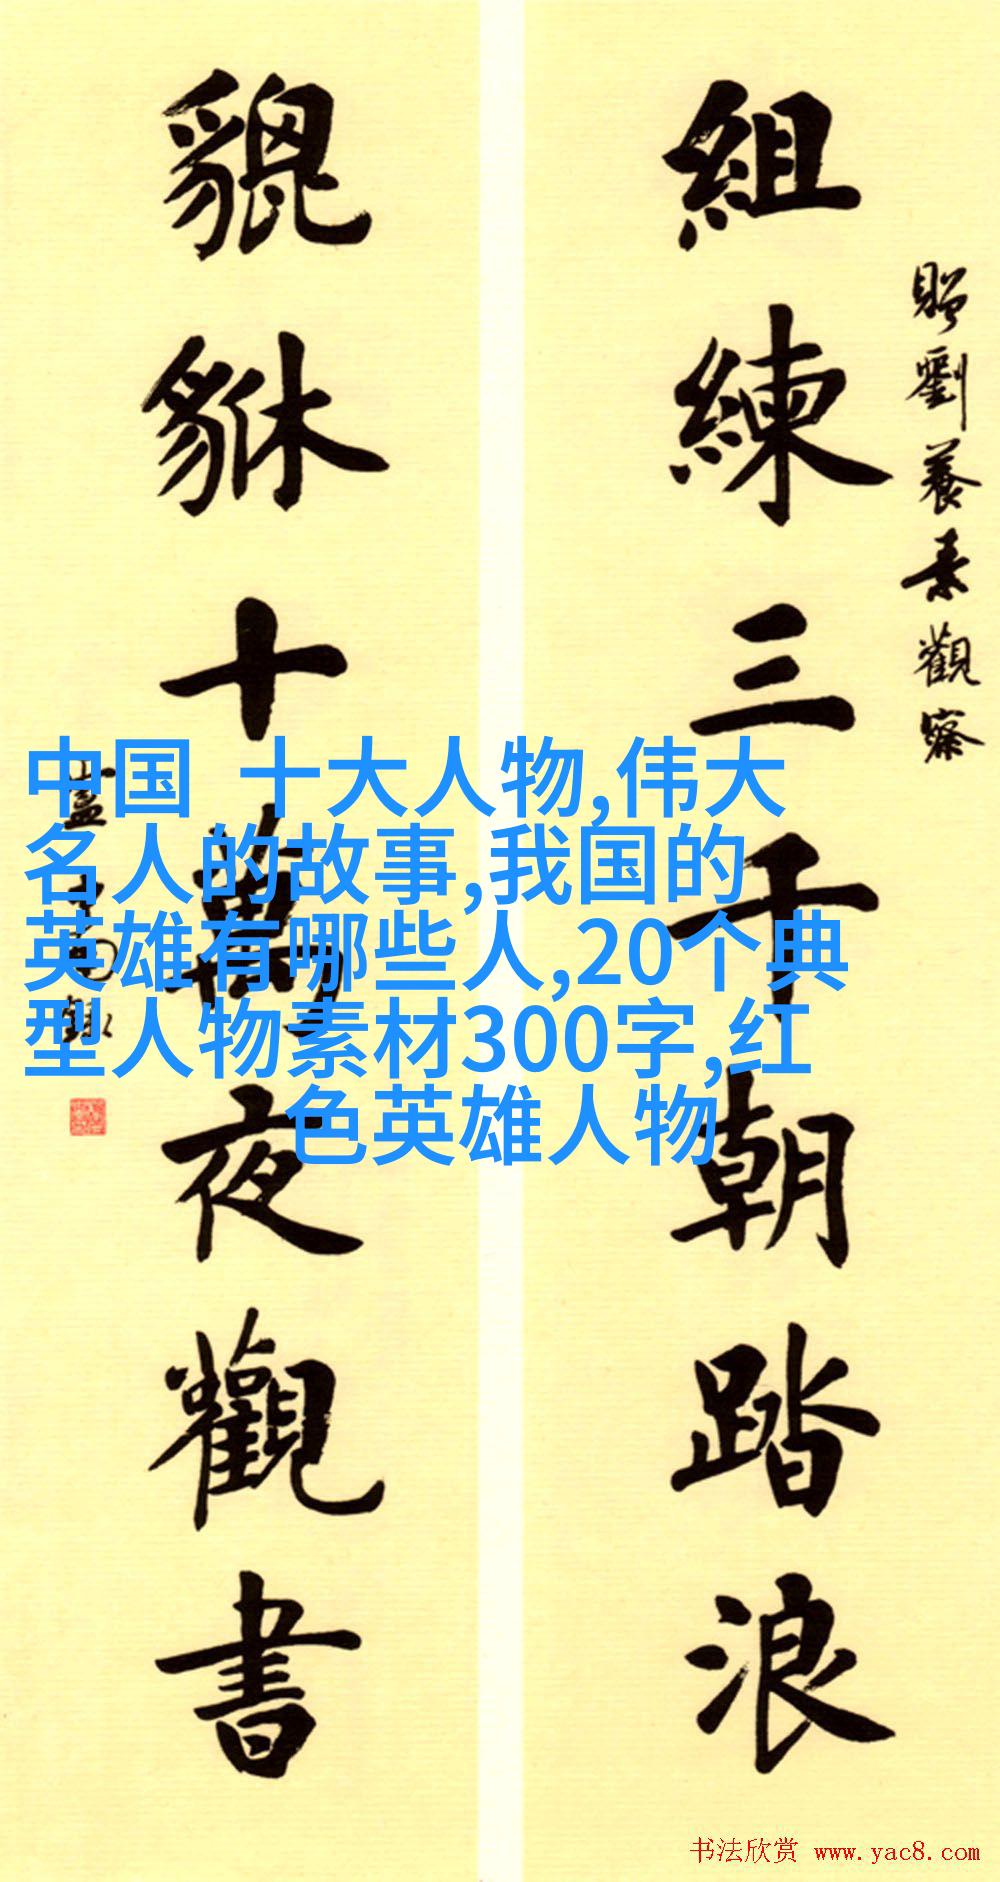 組練三千朝踏浪
貔貅十萬夜觀書
贈劉養素觀察
中国 十大人物,伟大
名人的故事,我国的
英雄有哪些人,20个典
型人物素材300字,红
色英雄人物
书法欣赏 www.yac8.com